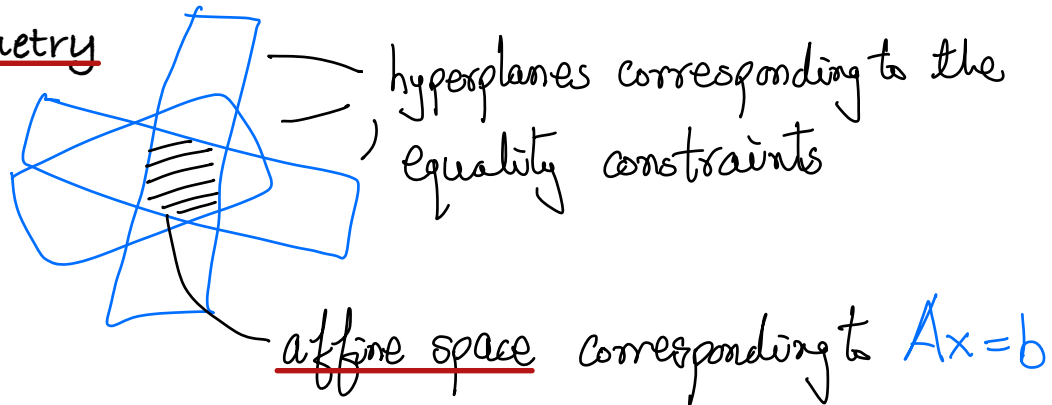 hyperplanes corresponding to the
equality constraints
affine space corresponding to Ax=b